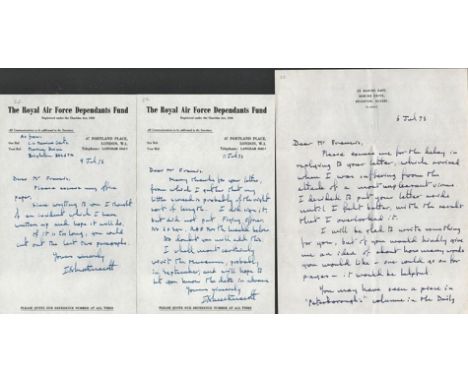 The Royal Air Force Dependants Fund
Registered under the Charities Act, 1960
All Communications to be addressed to the Secretary
67 PORTLAND PLACE,
LONDON, W.1.
Our Ref
Your Ref
Dear Mr Francis,
Please excuse my
paper.
Since writing to you I thought
of an incident which I have
written up and hope it will do.
If it is too long, you could
cut out the last two paragraphs.
Yours sincerely
PLEASE QUOTE OUR REFERENCE NUMBER AT ALL TIMES
The Royal Air Force Dependants Fund
Registered under the Charities Act, 1960
All Communications to be addressed to the Secretary
67 PORTLAND PLACE,
LONDON, W.1.
Our Ref
Your Ref
Dear Mr Francis,
Many thanks for your letter,
from which I gather that my
little is probably of the right
sort of length. I did sign it
but did not put Flying officer
No 60 Sqn, RAF
No doubt you will add this.
I shall most certainly
visit the Museum, probably,
in September, and will hope to
let you know the date in advance
Yours sincerely
PLEASE QUOTE OUR REFERENCE NUMBER AT ALL TIMES
MARINE GATE,
MARINE DRIVE,
BRIGHTON, SUSSEX
6 Jul 73
Dear Mr Francis,
Please excuse me for the delay in
replying to your letter, which arrived
when I was suffering from the
attack of a most unpleasant
I decided to put your letter aside
until I felt better, with the result
that I overlooked it.
I will be glad to write something
for you, but if you would kindly give
me an idea of about how many words
you would like - one could go on for
pages - it would be helpful
You may have seen a piece in
"Peterborough's" column in the Daily